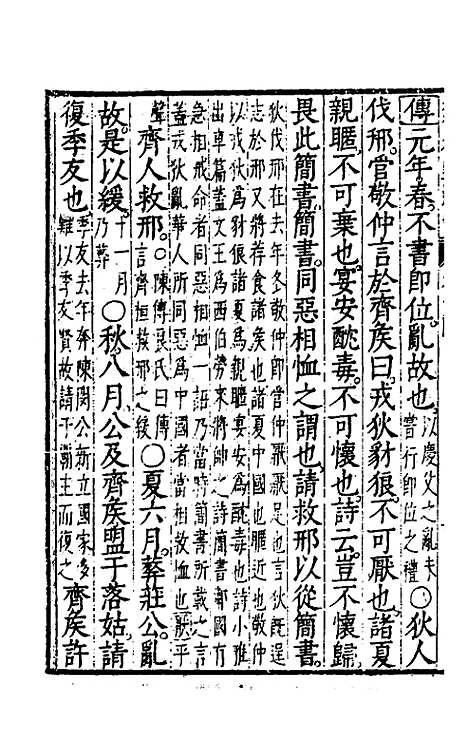 傳元年。春。不書即位。亂故也。以慶父之亂未嘗行即位之禮○狄人
伐邢。管敬仲言於齊矦曰。戎狄豺狼。不可厭也。諸夏
親暱。不可棄也。宴安酖毒。不可懷也。詩云。豈不懷歸。
畏此簡書。簡書。同惡相恤之謂也。請救邢以從簡書。
狄伐邢在去年冬敬仲即管仲厭足也言狄既逞
志於邢又將荐食諸矦也諸夏中國也暱近也敬仲
以戎狄為豺狼諸夏為親暱宴安為酖毒也詩小雅
出車篇蓋文王為西伯勞來將帥之詩簡書鄰國有
急相戒命者同惡相恤一語乃當時簡書所載之言
蓋戎狄亂華人所同惡為中國者當相救恤也厭平
聲齊人救邢。○陳傅良氏曰傳言齊桓救邢之緩○夏六月。葬莊公。亂
故。是以緩。十一月乃葬○秋。八月。公及齊矦盟于落姑。請
復季友也季友去年奔陳閔公新立國家多難以季友賢故請于霸主而復之齊矦許